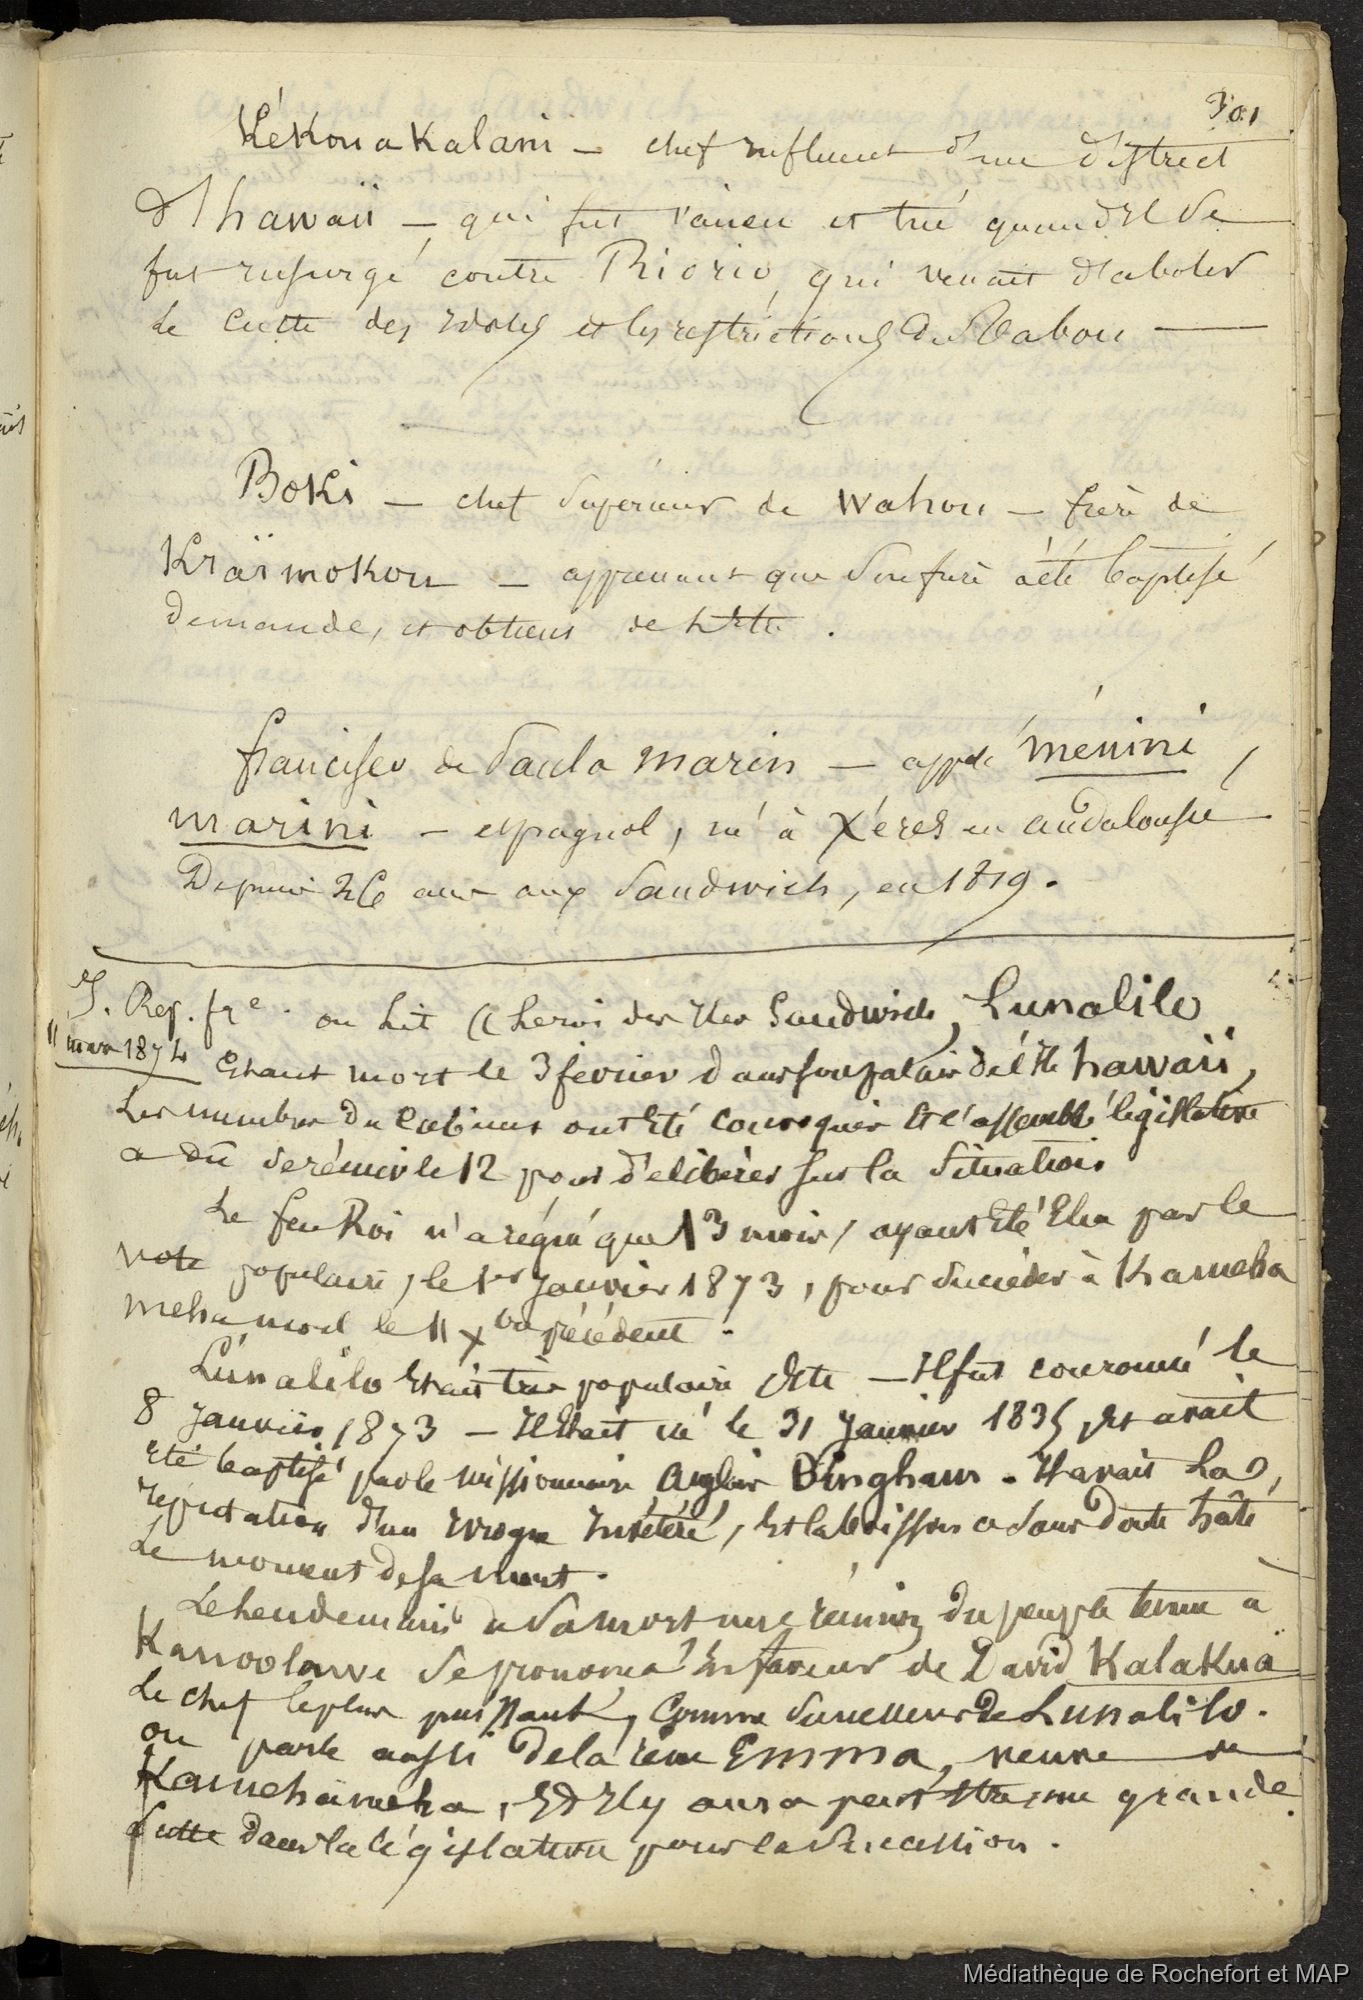 301
Kékoua Kalani — chef influent d'un district
d'hawaii — qui fut vaincu et tué quand il se
fut insurgé contre Riorio, qui venait d'abolir
le culte des idoles et les restrictions du Tabou —
Boki — chef superieur de Wahou — frère de
Kraïmokou — apprenant que son frère a été baptisé
demande, et obtient de l'être.
francisco de Paula marin — appelé ménini,
marini — espagnol, né à Xérès en andalousie
Depuis 26 ans aux Sandwich, en 1819.
J. Rep. fre. on lit (( le roi des iles Sandwich, Lunalilo
11 mars 1874 étant mort le 3 février dans son palais de l'ile hawaii,
les membres du cabinet ont été convoqués et l'assemblé législative
a dû se réunir le 12 pour délibérer sur la situation
Le feu Roi n'a régné que 13 mois, ayant été élu par le
vote populaire, le 1er janvier 1873, pour succéder à Kameha
meha mort le 11 Xbre précédent.
Lunalilo était très populaire — Il fut couronné le
8 janvier 1873 — Il était né le 31 janvier 1835, et avait
été baptisé par le missionnaire anglais Bingham. Il avait la
réputation d'un ivrogne invétéré, et la boisson a sans doute hâté
le moment de sa mort.
Le lendemain de sa mort une réunion du peuple tenue à
se prononça en faveur de David Kalakua
le chef le plus puissant, comme successeur de Lunalilo.
on parle aussi de la reine Emma, veuve de
Kamehameha, et il y aura peut être une grande
lutte dans la législature pour la succession.
Médiathèque de Rochefort et MAP